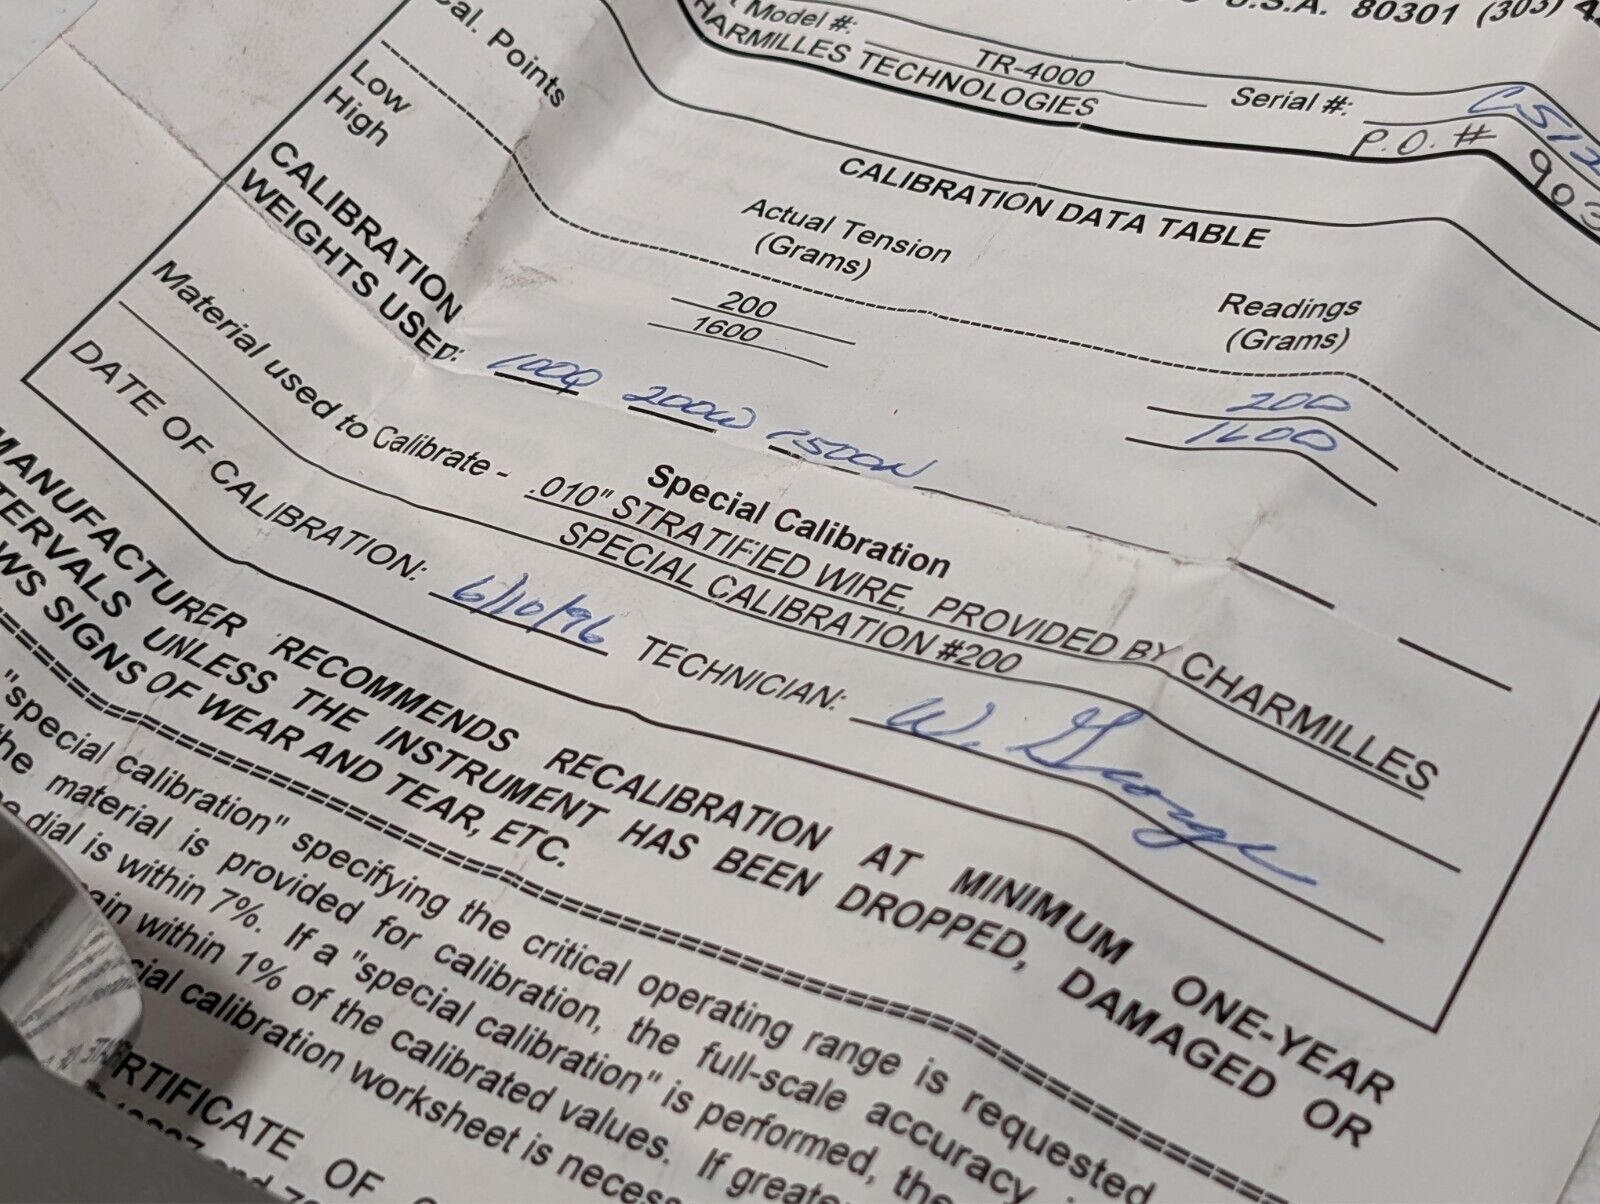 U.S.A. 80301 (303)
Model #: TR-4000 Serial #:
CHARMILLES TECHNOLOGIES P.O. #
CALIBRATION DATA TABLE
Cal. Points Actual Tension (Grams) Readings (Grams)
Low 200 200
High 1600 1600
CALIBRATION
WEIGHTS USED:
Special Calibration
Material used to Calibrate - .010" STRATIFIED WIRE, PROVIDED BY CHARMILLES
SPECIAL CALIBRATION #200
DATE OF CALIBRATION: 6/10/96 TECHNICIAN: W. George
MANUFACTURER RECOMMENDS RECALIBRATION AT MINIMUM ONE-YEAR
INTERVALS UNLESS THE INSTRUMENT HAS BEEN DROPPED, DAMAGED OR
SIGNS OF WEAR AND TEAR, ETC.
"special calibration" specifying the critical operating range is requested
the material is provided for calibration, the full-scale accuracy
dial is within 7%. If a "special calibration" is performed, the
within 1% of the calibrated values. If
calibration worksheet is
CERTIFICATE OF